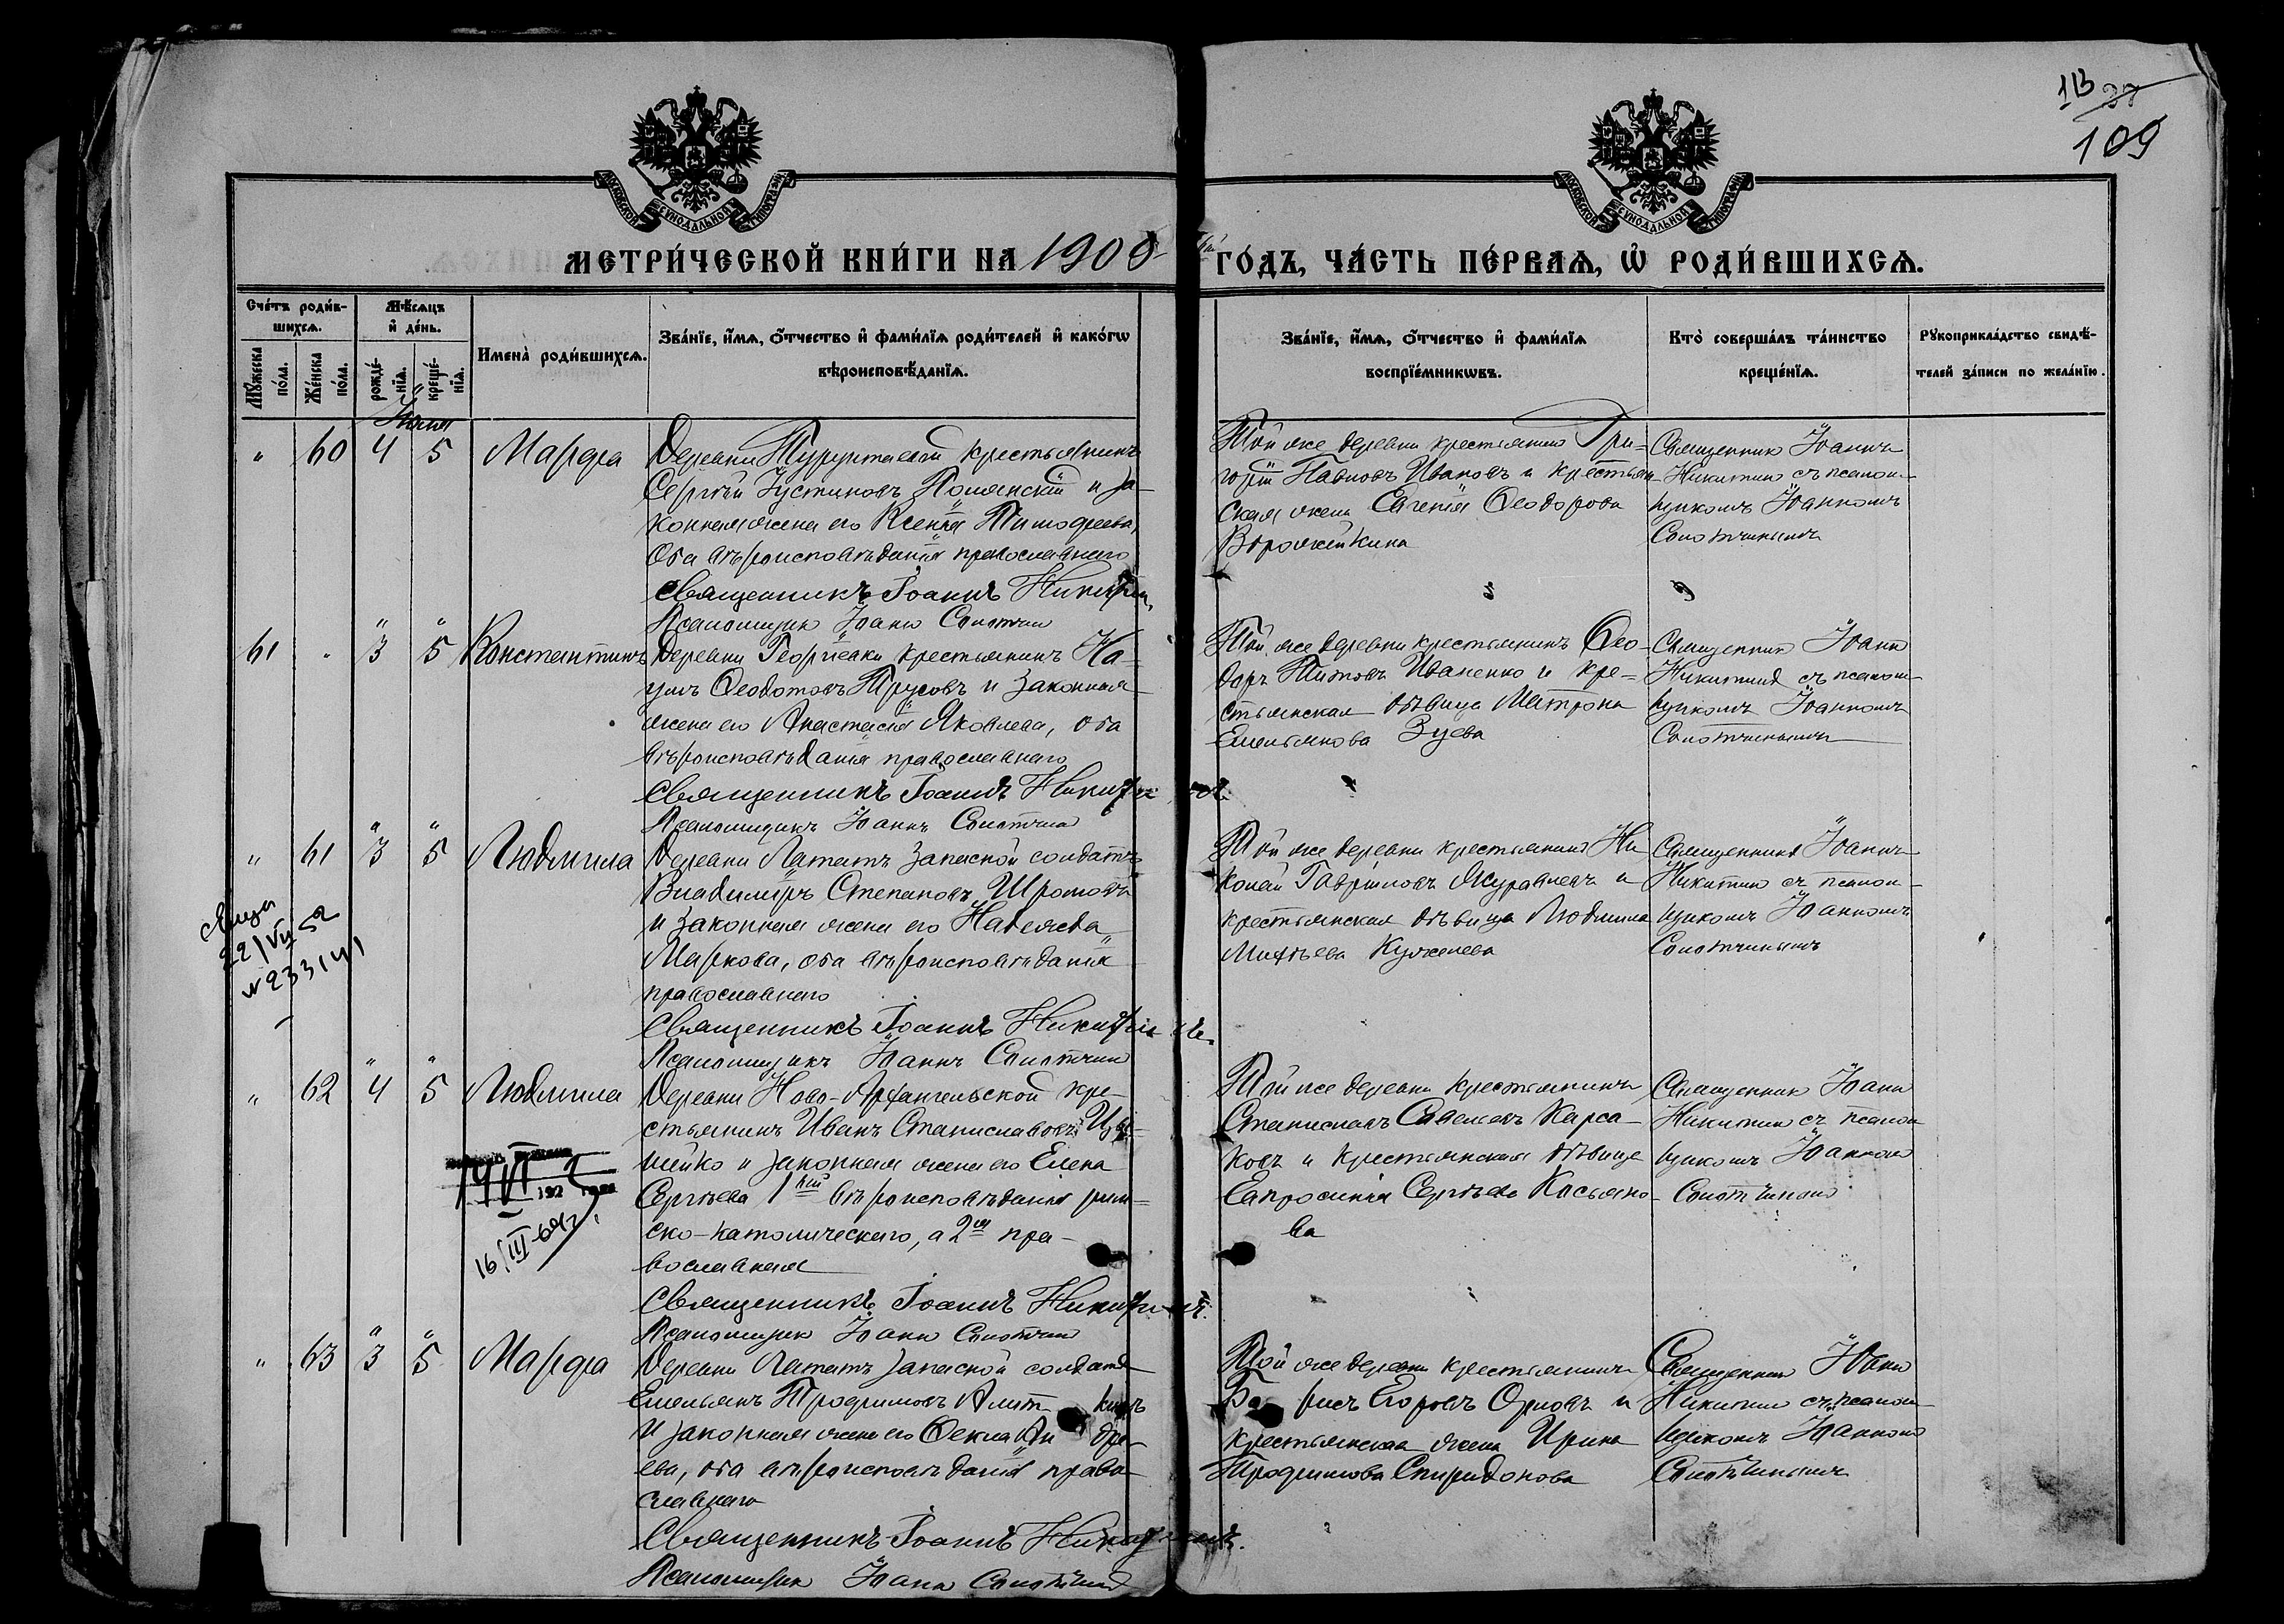 113 37
109
МОСКОВСКОЙ СѴНОДАЛЬНОЙ ТИПОГРАФІИ
МОСКОВСКОЙ СѴНОДАЛЬНОЙ ТИПОГРАФІИ
МЕТРИ́ЧЕСКОЙ КНИ́ГИ НА 1900
ГО́ДЪ, ЧА́СТЬ ПЕ́РВАѦ, Ѡ҆ РОДИ́ВШИХСѦ.
Сче́тъ роди́в-
шихсѧ.
Мꙋ́жеска по́ла.
Же́нска по́ла.
Мѣ́сѧцъ
и҆ де́нь.
рожде́-нїѧ.
креще́-нїѧ.
Имена̀ роди́вшихсѧ.
Зва́нїе, и҆́мѧ, ѻ҆́тчество и҆ фами́лїѧ роди́телей и҆ како́гѡ
вѣроисповѣ́данїѧ.
Зва́нїе, и҆́мѧ, ѻ҆́тчество и҆ фами́лїѧ
воспрїе́мникѡвъ.
Кто̀ соверша́лъ та́инство
креще́нїѧ.
Рꙋкоприкла́дство свидѣ́-
телей за́писи по жела́нїю.
" 60 4 5 Марфа
Деревни Турунтаевой крестьянинъ
Сергѣй Іустиновъ и за-
конная жена его Ксенія Тимофеева,
оба вѣроисповѣданія православнаго
Священникъ Іоаннъ Никитинъ
Псаломщикъ Іоаннъ
Той же деревни крестьянинъ Гри-
горій Павловъ Ивановъ и крестьян-
ская жена Евгенія Ѳеодорова
Ворожейкина
Священникъ Іоаннъ
Никитинъ съ псалом-
щикомъ Іоанномъ
61 " 3 5 Константинъ
Деревни Георгіевки крестьянинъ На-
умъ Ѳеодотовъ Трусовъ и законная
жена его Анастасія Яковлева, оба
вѣроисповѣданія православнаго
Священникъ Іоаннъ Никитинъ
Псаломщикъ Іоаннъ
Той же деревни крестьянинъ Ѳео-
доръ Титовъ Иваненко и кре-
стьянская дѣвица Матрона
Емельянова Зуева
Священникъ Іоаннъ
Никитинъ съ псалом-
щикомъ Іоанномъ
" 61 3 5 Людмила
Деревни Лататъ запасной солдатъ
Владимиръ Степановъ
и законная жена его Надежда
Маркова, оба вѣроисповѣданія
православнаго
Священникъ Іоаннъ Никитинъ
Псаломщикъ Іоаннъ
Той же деревни крестьянинъ Ни
колай Гавріиловъ Журавлевъ и
крестьянская дѣвица Людмила
Матѳѣева
Священникъ Іоаннъ
Никитинъ съ псалом-
щикомъ Іоанномъ
22/VII 52
№ 233141
" 62 4 5 Людмила
Деревни Ново-Архангельской кре-
стьянинъ Иванъ Станиславовъ
и законная жена его Елена
Сергѣева 1ный вѣроисповѣданія рим-
ско-католическаго, а 2ая пра-
вославная
Священникъ Іоаннъ Никитинъ
Псаломщикъ Іоаннъ
Той же деревни крестьянинъ
Станиславъ Савельевъ Карса-
ковъ и крестьянская дѣвица
Евпросинія Сергѣева Касьяно-
ва
Священникъ Іоаннъ
Никитинъ съ псалом
щикомъ Іоанномъ
192 года
16/III-69г.
" 63 3 5 Марфа
Деревни Лататъ запасной солдатъ
Емельянъ Трофимовъ
и законная жена его Ѳекла Ан дре-
ева, оба вѣроисповѣданія право-
славнаго
Священникъ Іоаннъ Никитинъ.
Псаломщикъ Іоаннъ
Той же деревни крестьянинъ
Бо рисъ Егоровъ Орловъ и
крестьянская жена Ирина
Трофимова Спиридонова
Священникъ Іоаннъ
Никитинъ съ псалом-
щикомъ Іоанномъ